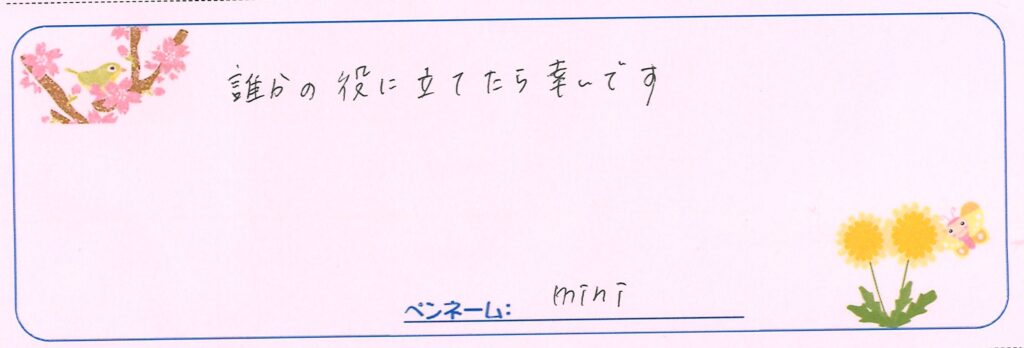 誰かの役に立てたら幸いです
ペンネーム: mini